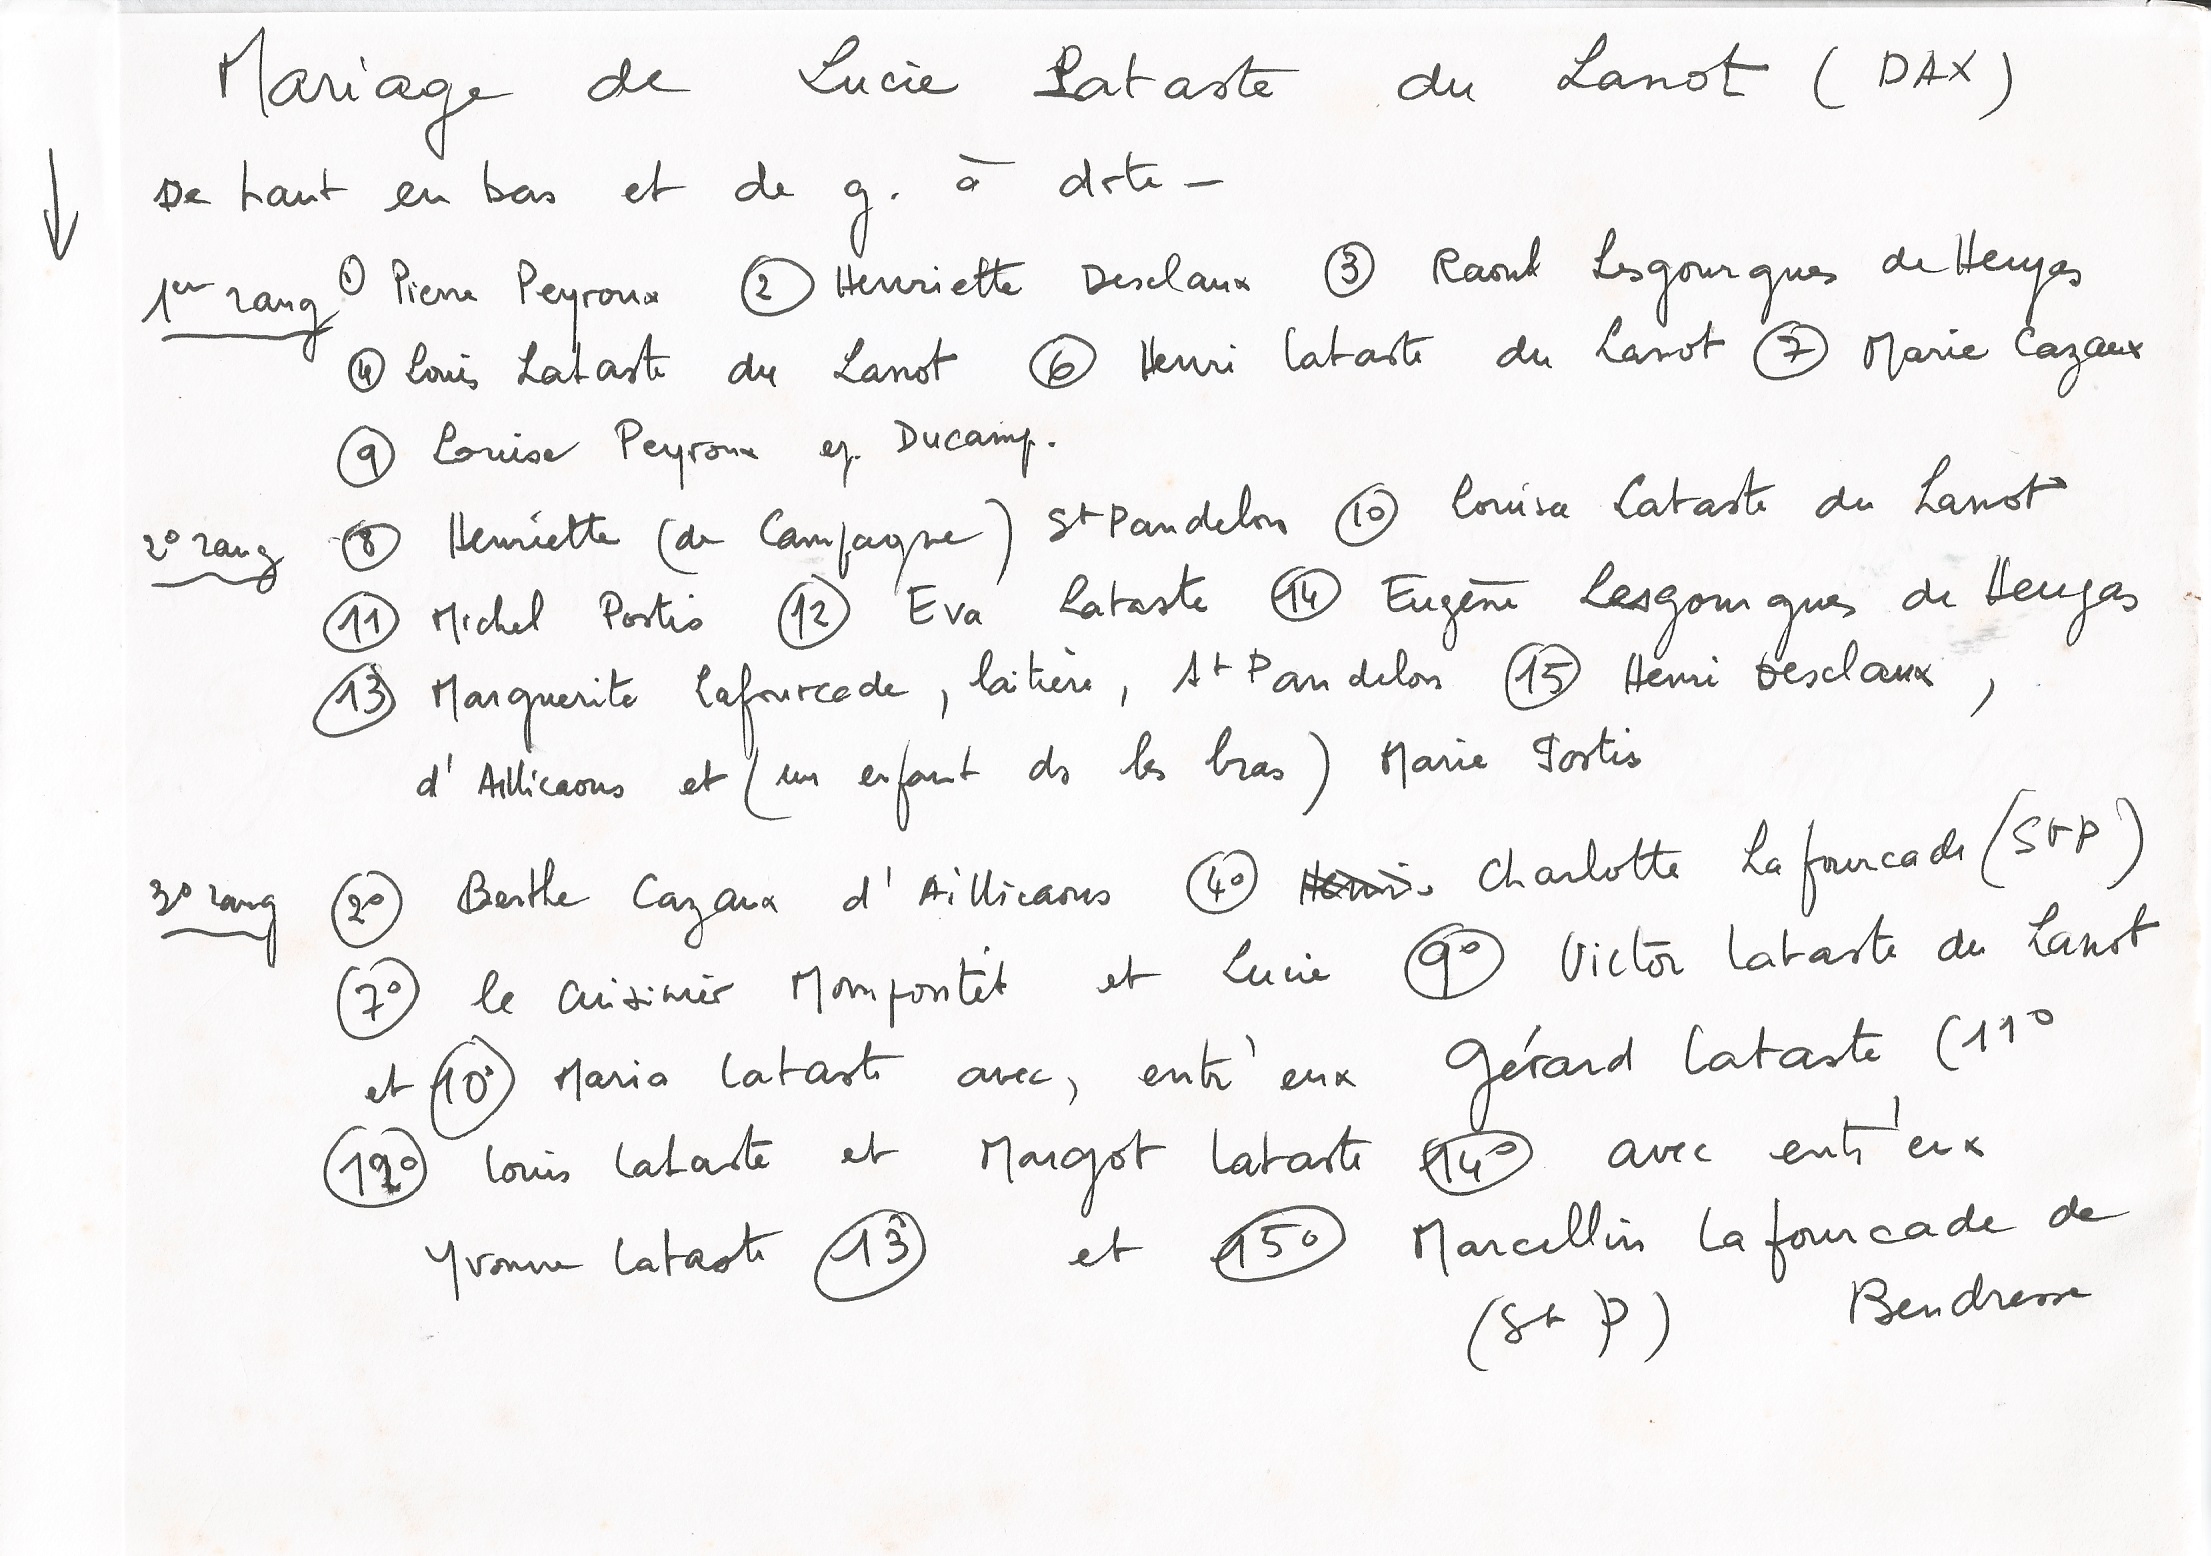 Mariage de Lucie Lataste du Lanot (DAX)
De haut en bas et de g. à drte -
1er rang ① Pierre Peyroux ② Henriette Desclaux ③ Raoul Lesgourgues de Heugas
④ Louis Lataste du Lanot ⑥ Henri Lataste du Lanot ⑦ Marie Cazaux
⑨ Louise Peyroux ep. Ducamp.
2° rang ⑧ Henriette (de Campagne) St Pandelon ⑩ Louisa Lataste du Lanot
⑪ Michel Postis ⑫ Eva Lataste ⑭ Eugène Lesgourgues de Heugas
⑬ Marguerite Lafourcade, laitière, St Pandelon ⑮ Henri Desclaux,
d'Aillicaous et (un enfant ds les bras) Marie Postis
3° rang 2° Berthe Cazaux d'Aillicaous 4° Henri. Charlotte Lafourcade (St P)
7° le cuisinier Mompontét et Lucie 9° Victor Lataste du Lanot
et 10° Maria Lataste avec, entr'eux Gérard Lataste (11°
12° Louis Lataste et Margot Lataste 14° avec entr'eux
Yvonne Lataste 13° et 15° Marcellin Lafourcade de
(St P) Bendresse